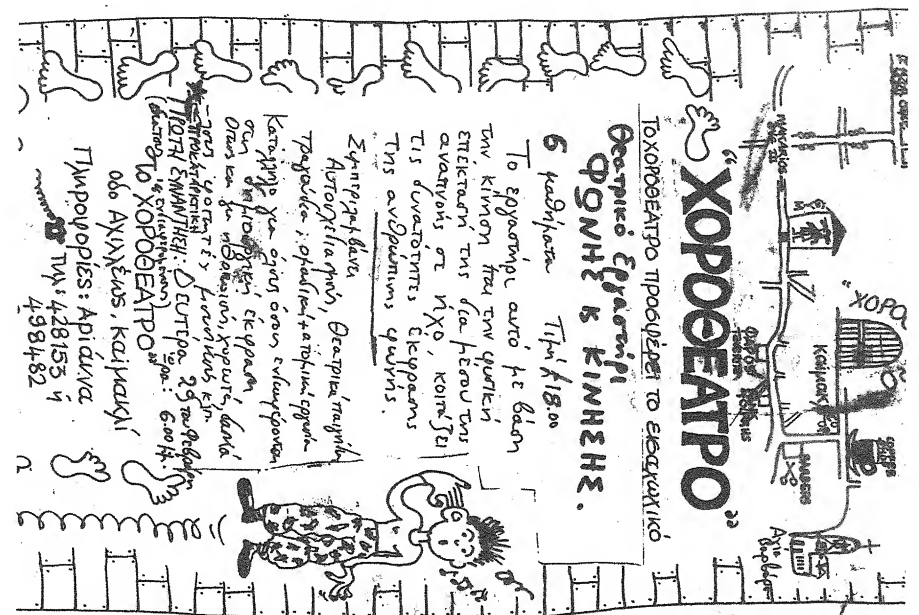 "ΧΟΡΟΘΕΑΤΡΟ"
ΤΟ ΧΟΡΟΘΕΑΤΡΟ ΠΡΟΣΦΕΡΕΙ ΤΟ ΕΙΣΑΓΩΓΙΚΟ
Θεατρικό Εργαστήρι
ΦΩΝΗΣ & ΚΙΝΗΣΗΣ.
6 μαθήματα Τιμή £18.00
Το εργαστήρι αυτό με βάση
την κίνηση και την φυσική
επέκταση της δια μέσου της
αναπνοής σε ήχο, κοιτάζει
τις δυνατότητες έκφρασης
της ανθρώπινης φωνής.
Συμπεριλαμβάνει
Αυτοσχεδιασμούς, Θεατρικά παιχνίδια
τραγούδια, ομαδική + ατομική εργασία
Κατάλληλο για όλους όσους ενδιαφέρονται
στην δημιουργική έκφραση,
Όπως και για ηθοποιούς, χορευτές, δασκά
-λους, φοιτητές, μουσικούς κ.λ.π.
ΠΡΩΤΗ ΣΥΝΑΝΤΗΣΗ: Δευτέρα 29 του Φεβράρη
ώρα: 6.00 μ.μ.
ΤΟ ΧΟΡΟΘΕΑΤΡΟ"
οδο Αχιλλέως, Καϊμακλί
Πληροφορίες: Αριάνα
Τηλ: 428153 ή
498482
"ΧΟΡΟ
Καϊμακλί
ΦΟΥΡΝΟΣ
Αγία
Βαρβάρα